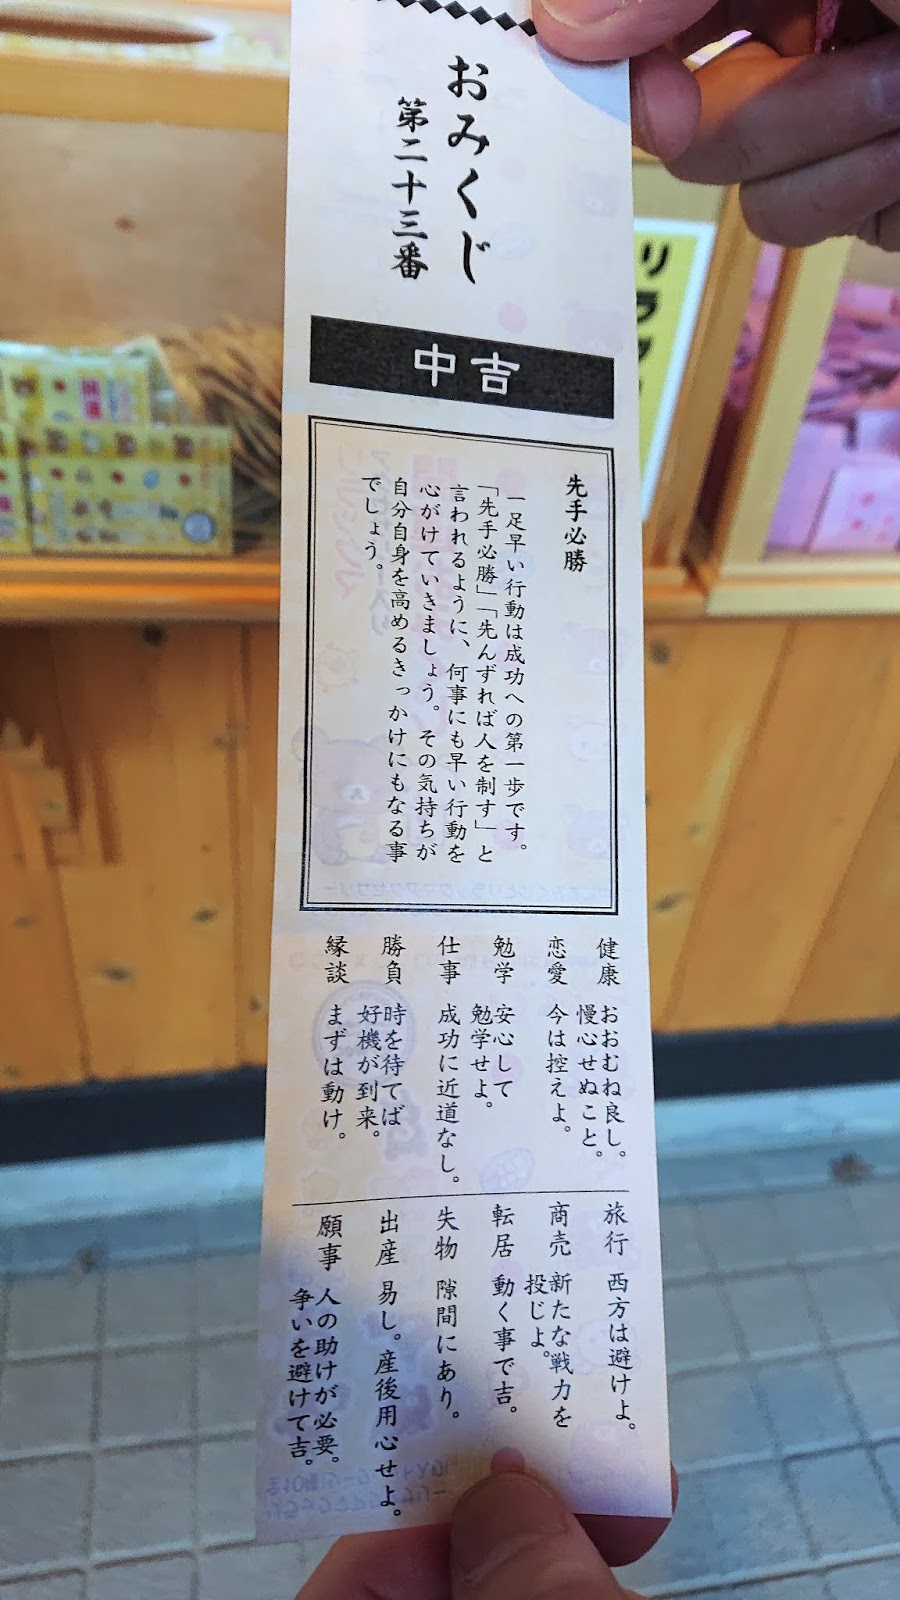 おみくじ
第二十三番
中吉
先手必勝
一足早い行動は成功への第一歩です。
「先手必勝」「先んずれば人を制す」と
言われるように、何事にも早い行動を
心がけていきましょう。その気持ちが
自分自身を高めるきっかけにもなる事
でしょう。
健康 おおむね良し。
慢心せぬこと。
恋愛 今は控えよ。
勉学 安心して
勉学せよ。
仕事 成功に近道なし。
勝負 時を待てば
好機が到来。
縁談 まずは動け。
旅行 西方は避けよ。
商売 新たな戦力を
投じよ。
転居 動く事で吉。
失物 隙間にあり。
出産 易し。産後用心せよ。
願事 人の助けが必要。
争いを避けて吉。
リラ